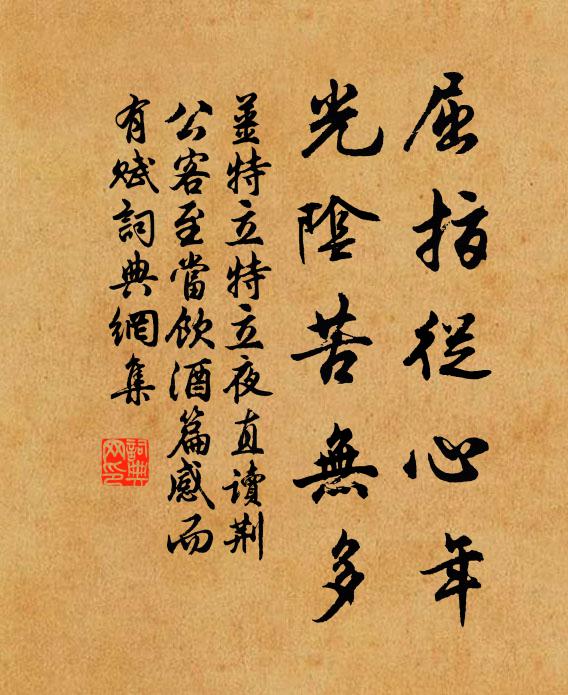 屈指從心年
光陰苦無多
姜特立特立夜直讀荆
公客至當飲酒篇感而
有賦詞典網集
詞典
网印